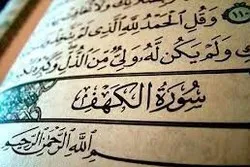 وَقُلِ الْحَمْدُ لِلَّهِ الَّذِي لَمْ
وَلَمْ يَكُن لَّهُ وَلِيٌّ مِّنَ الذُّلِّ وَكَبِّرْهُ
سُورَةُ الْكَهْفِ
اللَّهِ الرَّحْمَٰنِ الرَّحِيمِ